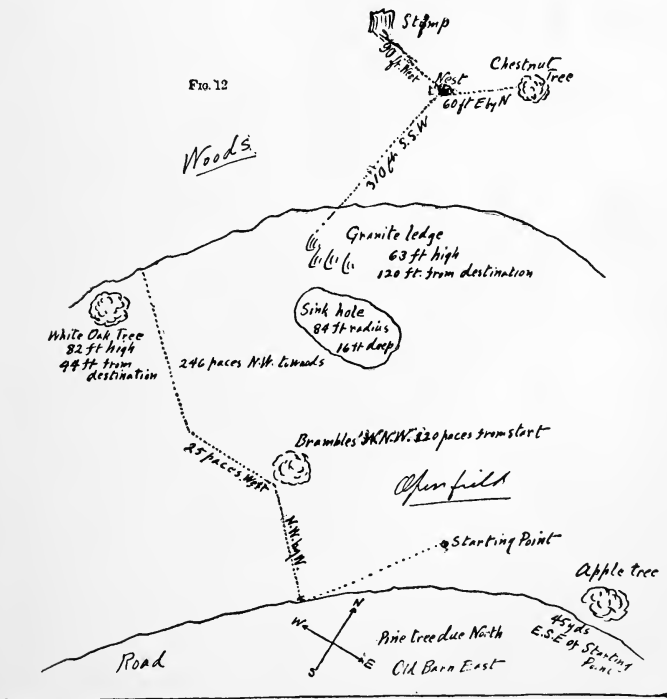 Stump
90 ft. West
Nest
Chestnut
Tree
60 ft E by N
FIG. 12
Woods.
310 ft. S.S.W
Granite ledge
63 ft high
120 ft. from destination
Sink hole
84 ft radius
16 ft deep
White Oak Tree
82 ft high
44 ft from
destination
246 paces N.W. to woods
Brambles N.W. 320 paces from start
25 paces West
Open field
N.W. by N
Starting Point
Apple tree
45 yds
E.S.E of Starting
Point
N
W
E
S
Pine tree due North
Old Barn East
Road